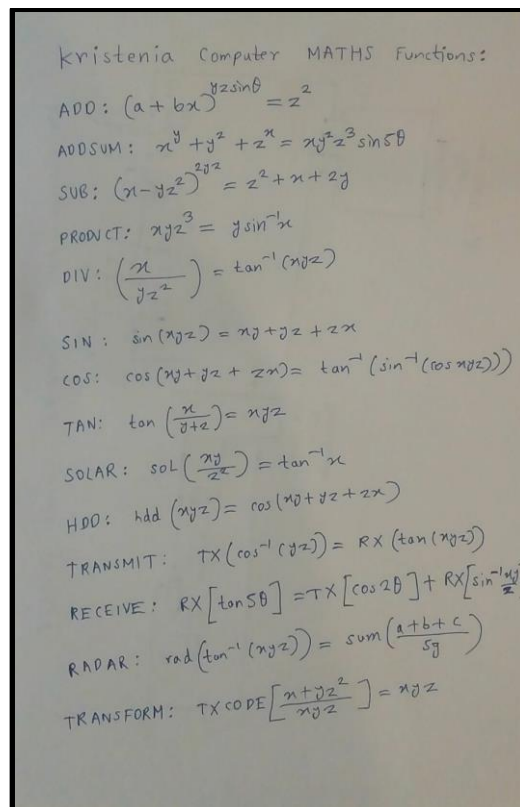 Kristenia Computer MATHS Functions:
ADD: (a + bx)^yzsinθ = z²
ADDSUM: x^y + y² + z^x = xy²z³ sin5θ
SUB: (x-yz²)^2yz = z² + x + 2y
PRODUCT: xyz³ = y sin⁻¹x
DIV: (x/yz²) = tan⁻¹(xyz)
SIN: sin(xyz) = xy + yz + zx
COS: cos(xy + yz + zx) = tan⁻¹(sin⁻¹(cosxyz)))
TAN: tan(x/y+z) = xyz
SOLAR: SOL(xy/z²) = tan⁻¹x
HDD: hdd(xyz) = cos(xy + yz + zx)
TRANSMIT: TX(cos⁻¹(yz)) = RX(tan(xyz))
RECEIVE: RX[tan5θ] = TX[cos2θ] + RX[sin⁻¹xy/z
RADAR: rad(tan⁻¹(xyz)) = sum(a + b + c/5g)
TRANSFORM: TXCODE[x + yz²/xyz] = xyz